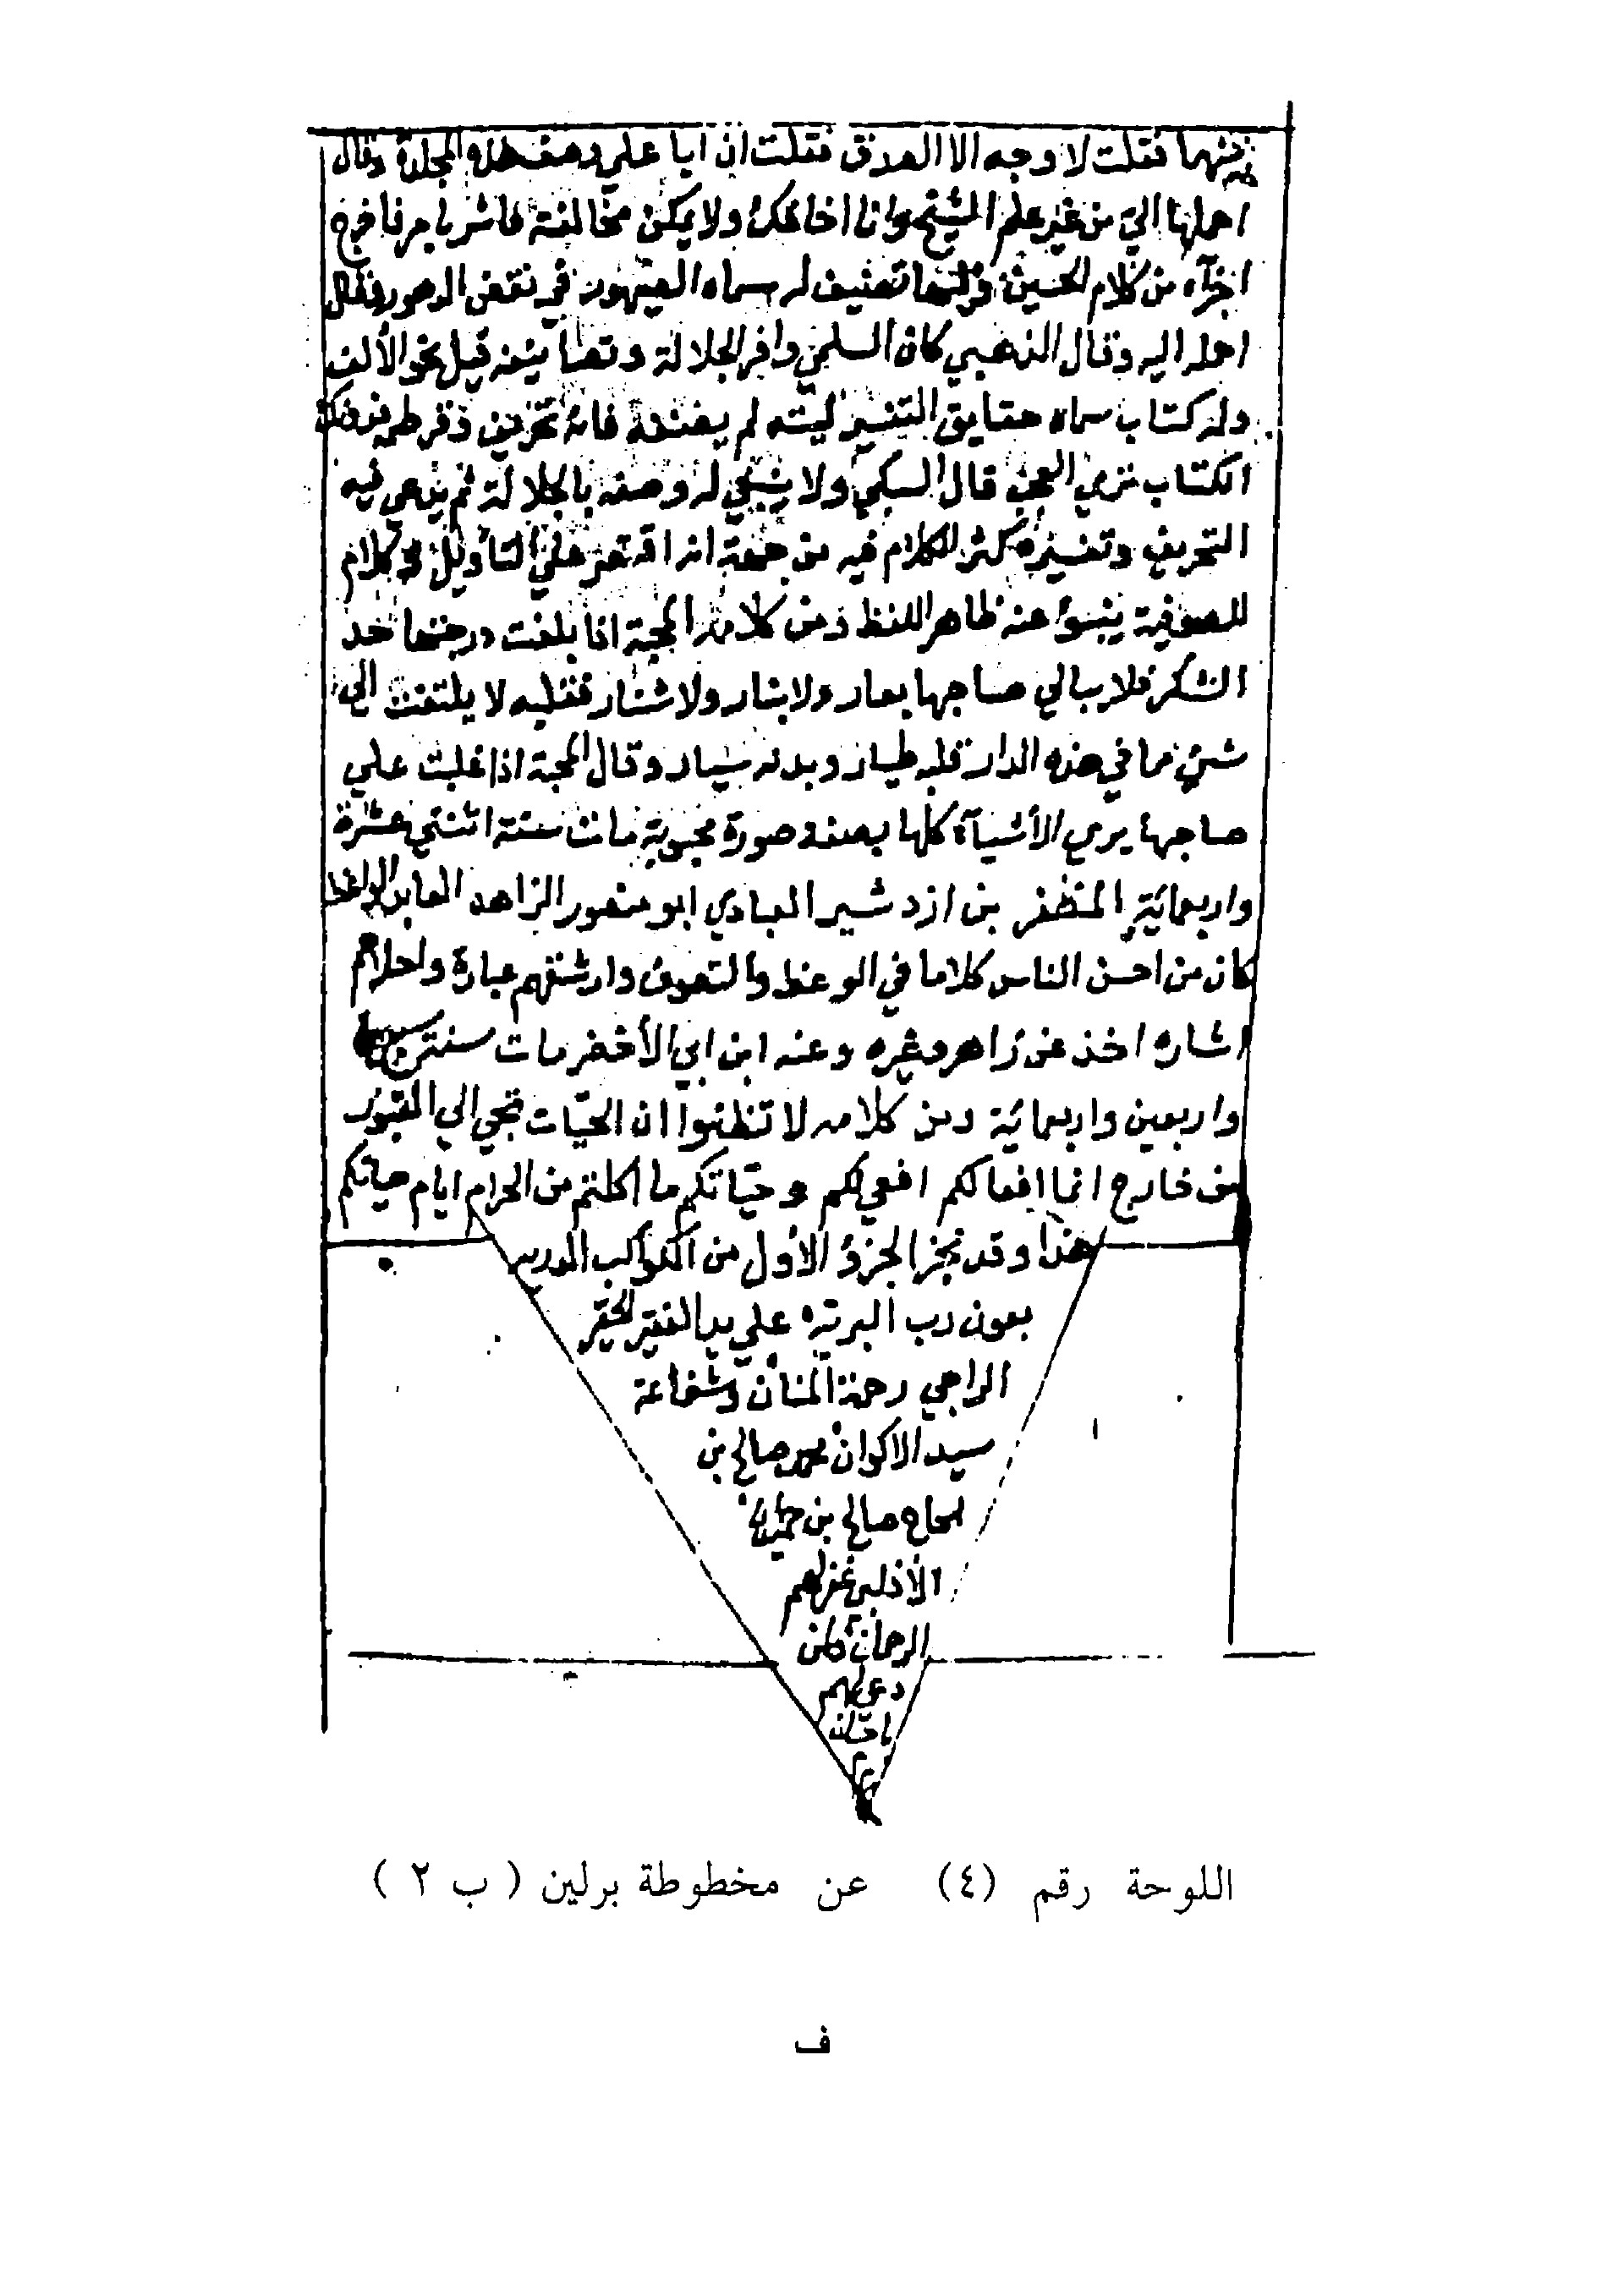 منهما فقلت لا وجه الا الصدق فقلت ان ابا علي وصف هذه المجلدة وقال
احملها الي من غير علم الشيخ وانا اخافك ولا يمكن مخالفته فما تأمرنا فاخرج
اجزآء من كلام الحسين وفيها تصنيف له سماه الصيهور في نقض الدهور فقال
احمله اليه وقال الذهبي كان السلمي وافر الجلالة وتصانيفه قيل نحو الألف
وله كتاب سماه حقايق التفسير ليته لم يصنفه فانه تحريف وقرمطة فدونك
الكتاب فتري العجب قال السبكي ولا ينبغي له وصفه بالجلالة ثم يدعي فيه
التحريف وتفسيره كثر الكلام فيه من جهة انه اقتصر علي التأويل وكلام
للصوفية ينبوا عنه ظاهر اللفظ ومن كلامه المحبة اذا بلغت درجتها حد
الشكر فلا يبالي صاحبها بعار ولا بنار ولا شنار فقلبه لا يلتفت الي
شيئ مما في هذه الدار قلبه طيار وبدنه سيار وقال المحبة اذا غلبت علي
صاحبها يري الأشيآء كلها بصفة صورة محبوبة مات سنة اثنتي عشرة
واربعمائة المظفر بن ازدشير العبادي ابو منصور الزاهد العابد الواعظ
كان من احسن الناس كلاما في الوعظ والتصوف وارشقهم عبارة واحلاهم
اشاره اخذ عن زاهر وغيره وعنه ابن ابي الأخضر مات سنة
واربعين واربعمائة ومن كلامه لا تظنوا ان الحيّات تجي الي القبور
من خارج انما افعالكم افعي لكم وحيّاتكم ما اكلتم من الحرام ايام حياتكم
هذا وقد نجز الجزؤ الأول من الكواكب الدريه
بعون رب البريه علي يد الفقير الحقير
الراجي رحمة المنان وشفاعة
سيد الاكوان محمد صالح بن
الحاج صالح بن
غفر لهم
الرحمان
دعي لهم
اللوحة رقم (٤) عن مخطوطة برلين ( ب ٢ )
ف